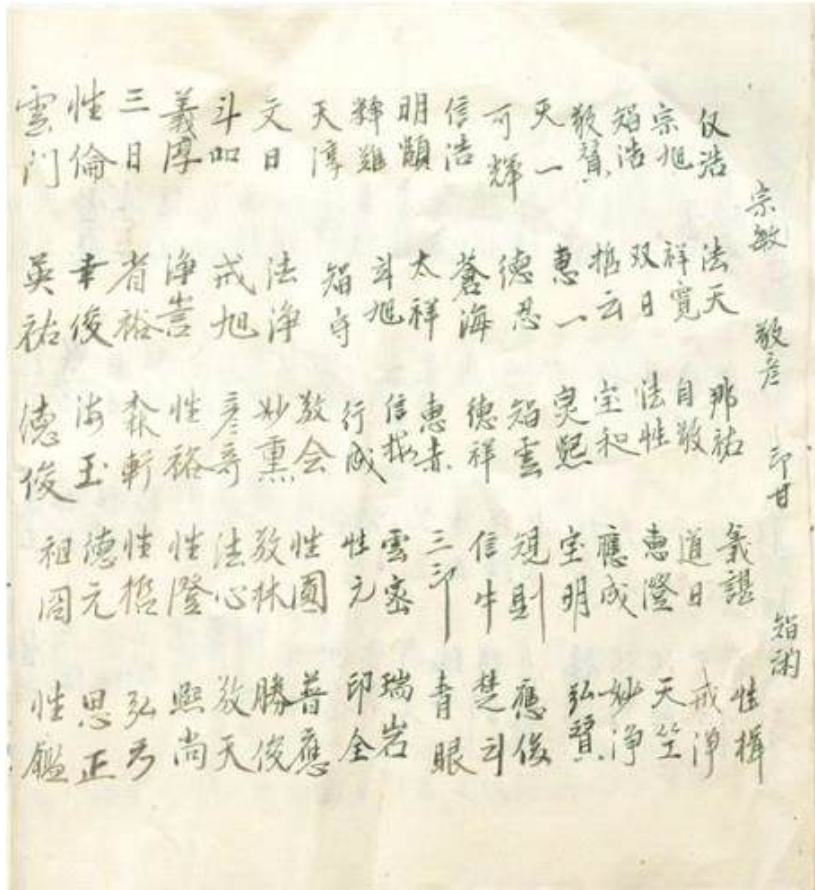 宗敏 敬彦 印甘 智
仅浩 宗旭 智浩 敬賛 天一 可輝 信浩 明 天淳 文日 斗如 義淳 三日 性倫 雲门
法天 祥寬 双日 哲云 惠一 德忍 蒼海 太祥 斗旭 智守 法淨 戒旭 淨 省裕 幸俊 英祐
那祐 自敬 法性 宝和 炅熙 智雲 德祥 惠赤 信 行成 敬会 妙熏 彦奇 性裕 森軒 海玉 德俊
義諶 道日 惠澄 應成 宝明 規則 信牛 三印 雲密 性元 性圓 敬林 法心 性澄 性哲 德元 祖
性楫 戒淨 天竺 妙淨 弘賛 應俊 楚斗 青眼 瑞岩 印全 普應 勝俊 敬天 熙尚 弘 思正 性鑑